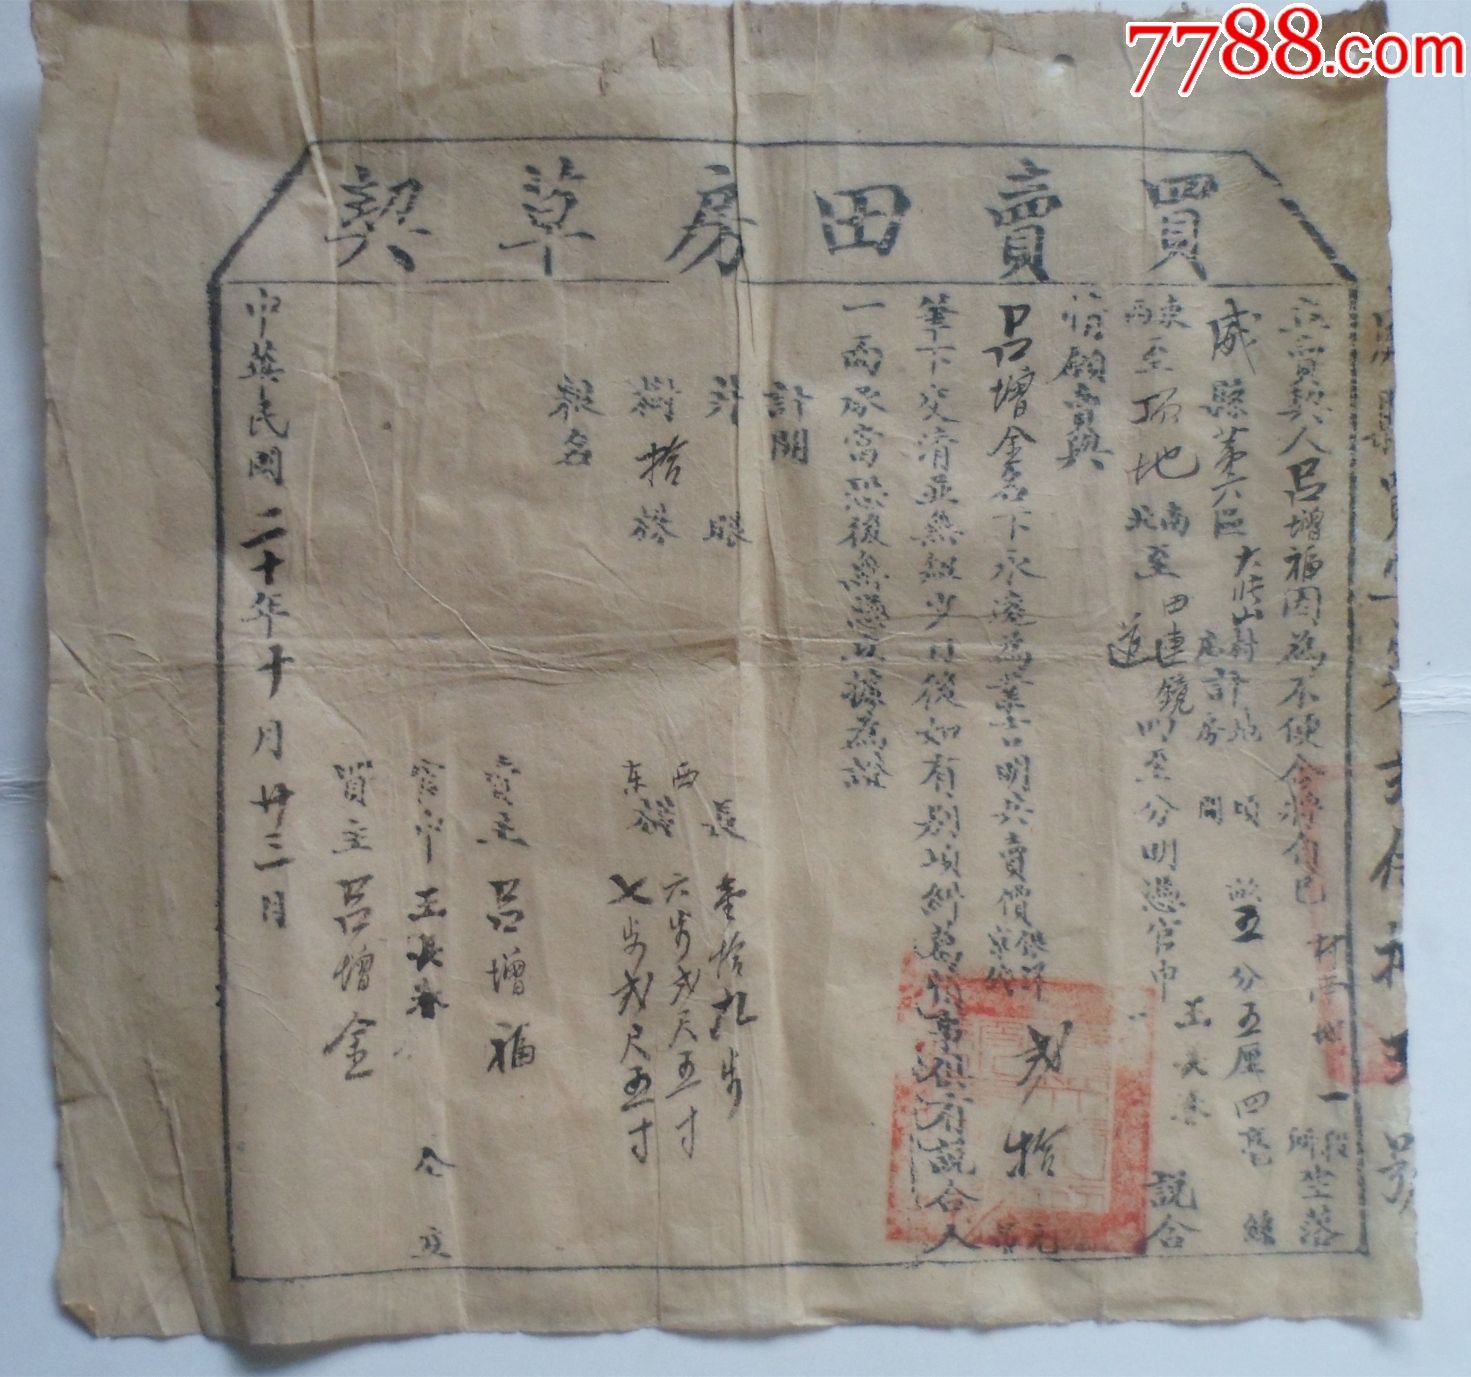 7788.com
買賣田房草契
立賣契人呂增福因為不便今將自己村西地一段所坐落
威縣第六區大張山村計地頃畝五分五厘四毫
房間
東西至頂地南北至田連鏡道四至分明憑官中王長春說合
情願賣與
呂增金名下永遠為業言明共賣價銀洋貳拾元
筆下交清並無短少日後如有別項糾葛情事俱有說合人
一面承當恐後無憑立據為證
計開
井眼
樹拾株
糧名
長壹拾九步
西六步貳尺五寸
东橫七步貳尺五寸
賣主呂增福
官中王長春仝立
買主呂增金
中華民國二十年十月廿三日